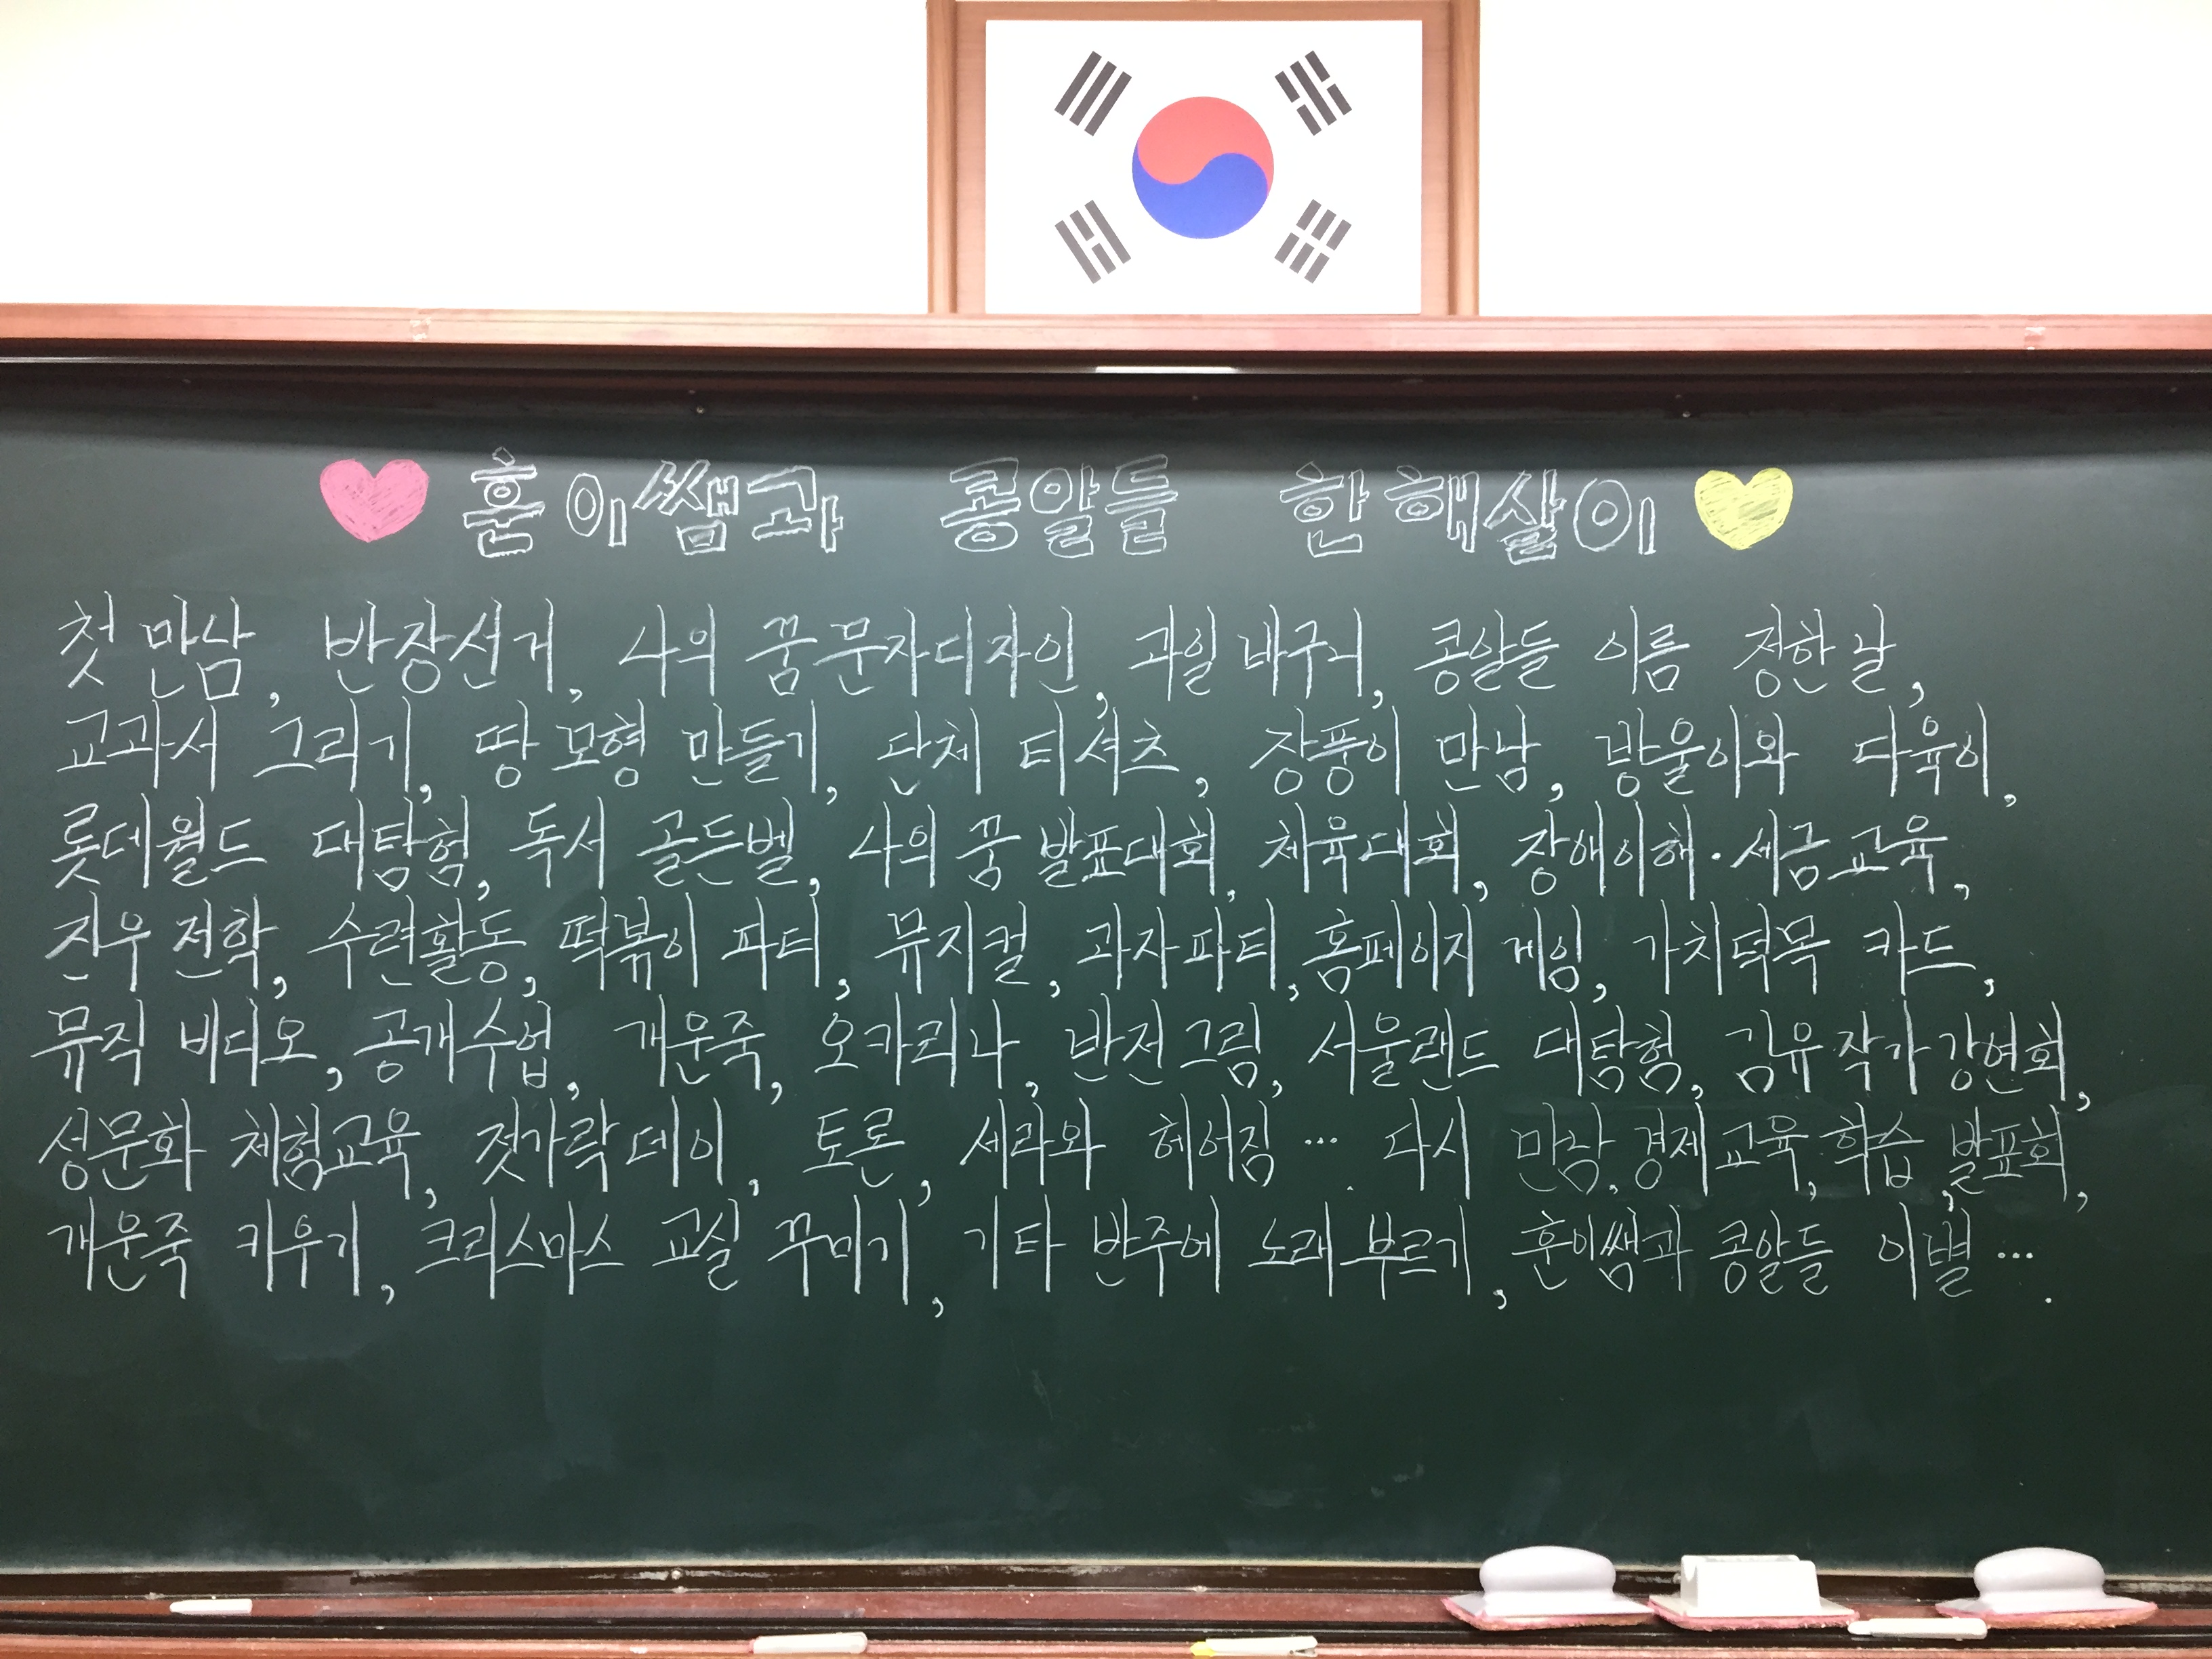 훈이쌤과 콩알들 한해살이
첫 만남, 반장선거, 나의 꿈 문자디자인, 과일 바구니, 콩알들 이름 정한 날,
교과서 그리기, 땅 모형 만들기, 단체 티셔츠, 장풍이 만남, 방울이와 다육이,
롯데월드 대탐험, 독서 골든벨, 나의 꿈 발표대회, 체육대회, 장애이해·세금교육,
진우 전학, 수련활동, 떡볶이 파티, 뮤지컬, 과자파티, 홈페이지 게임, 가치덕목 카드,
뮤직 비디오, 공개수업, 개운죽, 오카리나, 반전그림, 서울랜드 대탐험, 김유 작가 강연회,
성문화 체험교육, 젓가락데이, 토론, 세라와 헤어짐… 다시 만남, 경제교육, 학습 발표회,
개운죽 키우기, 크리스마스 교실 꾸미기, 기타 반주에 노래 부르기, 훈이쌤과 콩알들 이별….